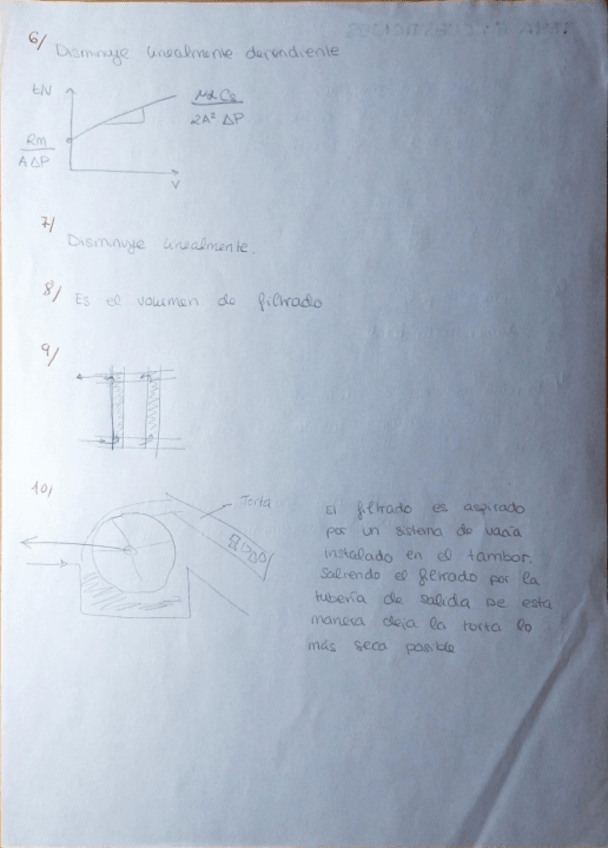 6/ Disminuye linealmente dependiente
t/V
μα Cs
2A² ΔP
Rm
A ΔP
V
7/
Disminuye linealmente.
8/ Es el volumen de filtrado
9/
10/
Torta
El filtrado es aspirado
por un sistema de vacía
instalado en el tambor.
Saliendo el filtrado por la
tubería de salida De esta
manera deja la torta lo
más seca posible